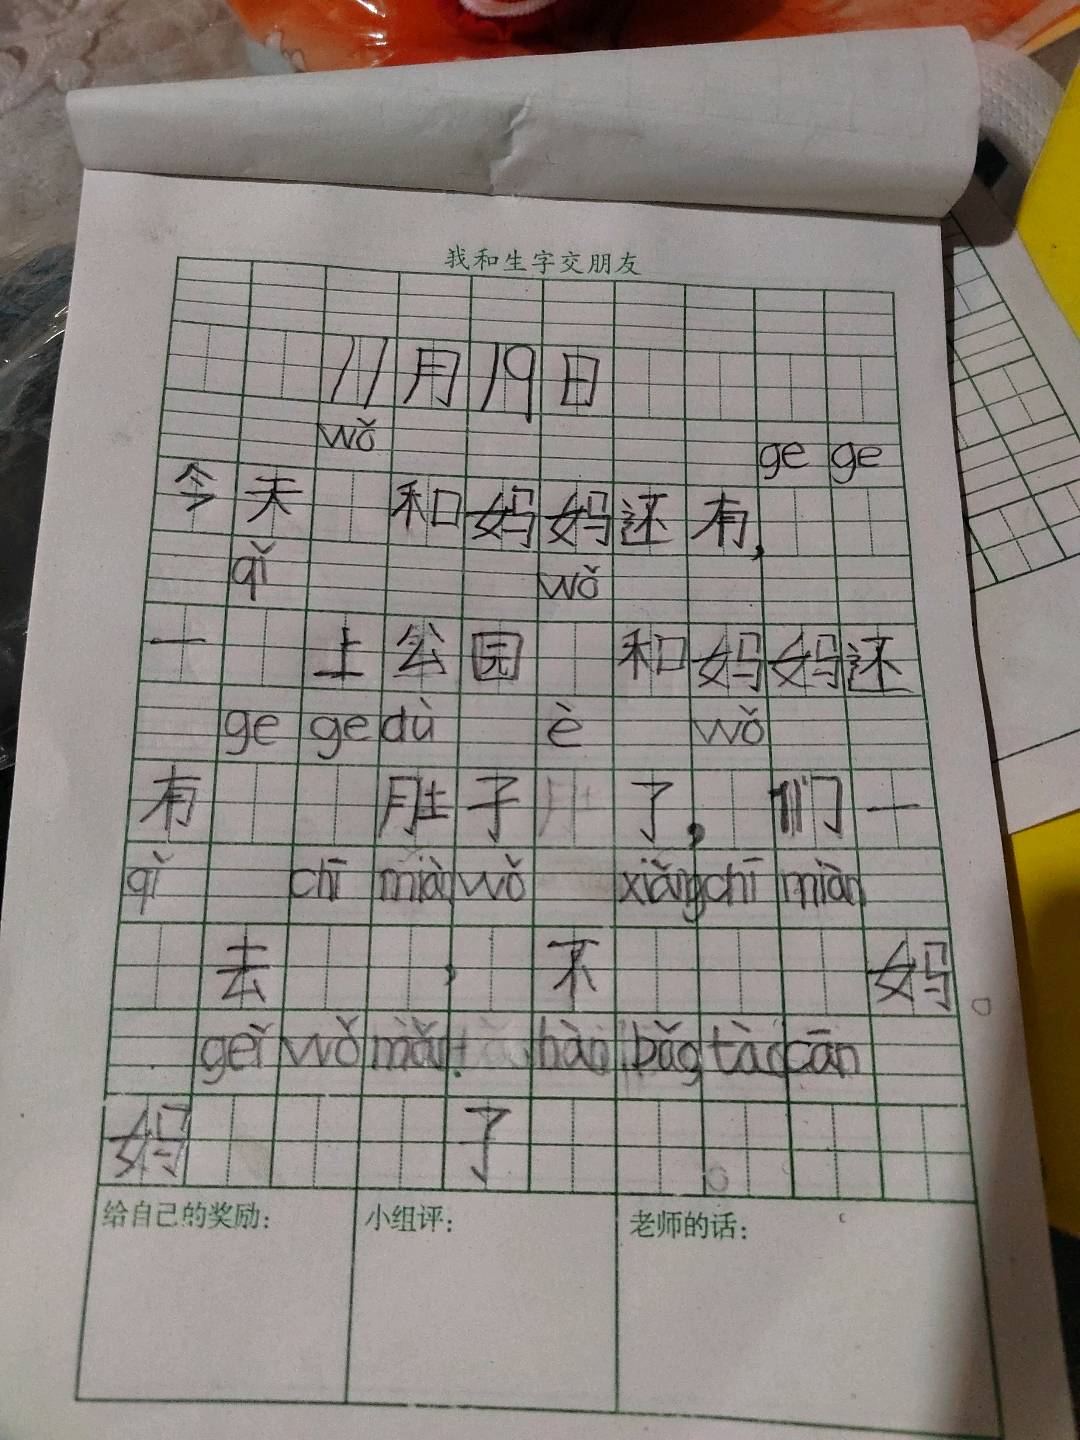 我和生字交朋友
11月19日
wǒ ge ge
今天 和妈妈还有,
qǐ wǒ
一 上公园 和妈妈还
ge ge dù è wǒ
有 肚子 了, 们一
qǐ chī miàn wǒ xiǎng chī miàn
去 , 不 妈。
geǐ wǒ mǎi hàn bǎo tào cān
妈 了 。
给自己的奖励: 小组评: 老师的话: